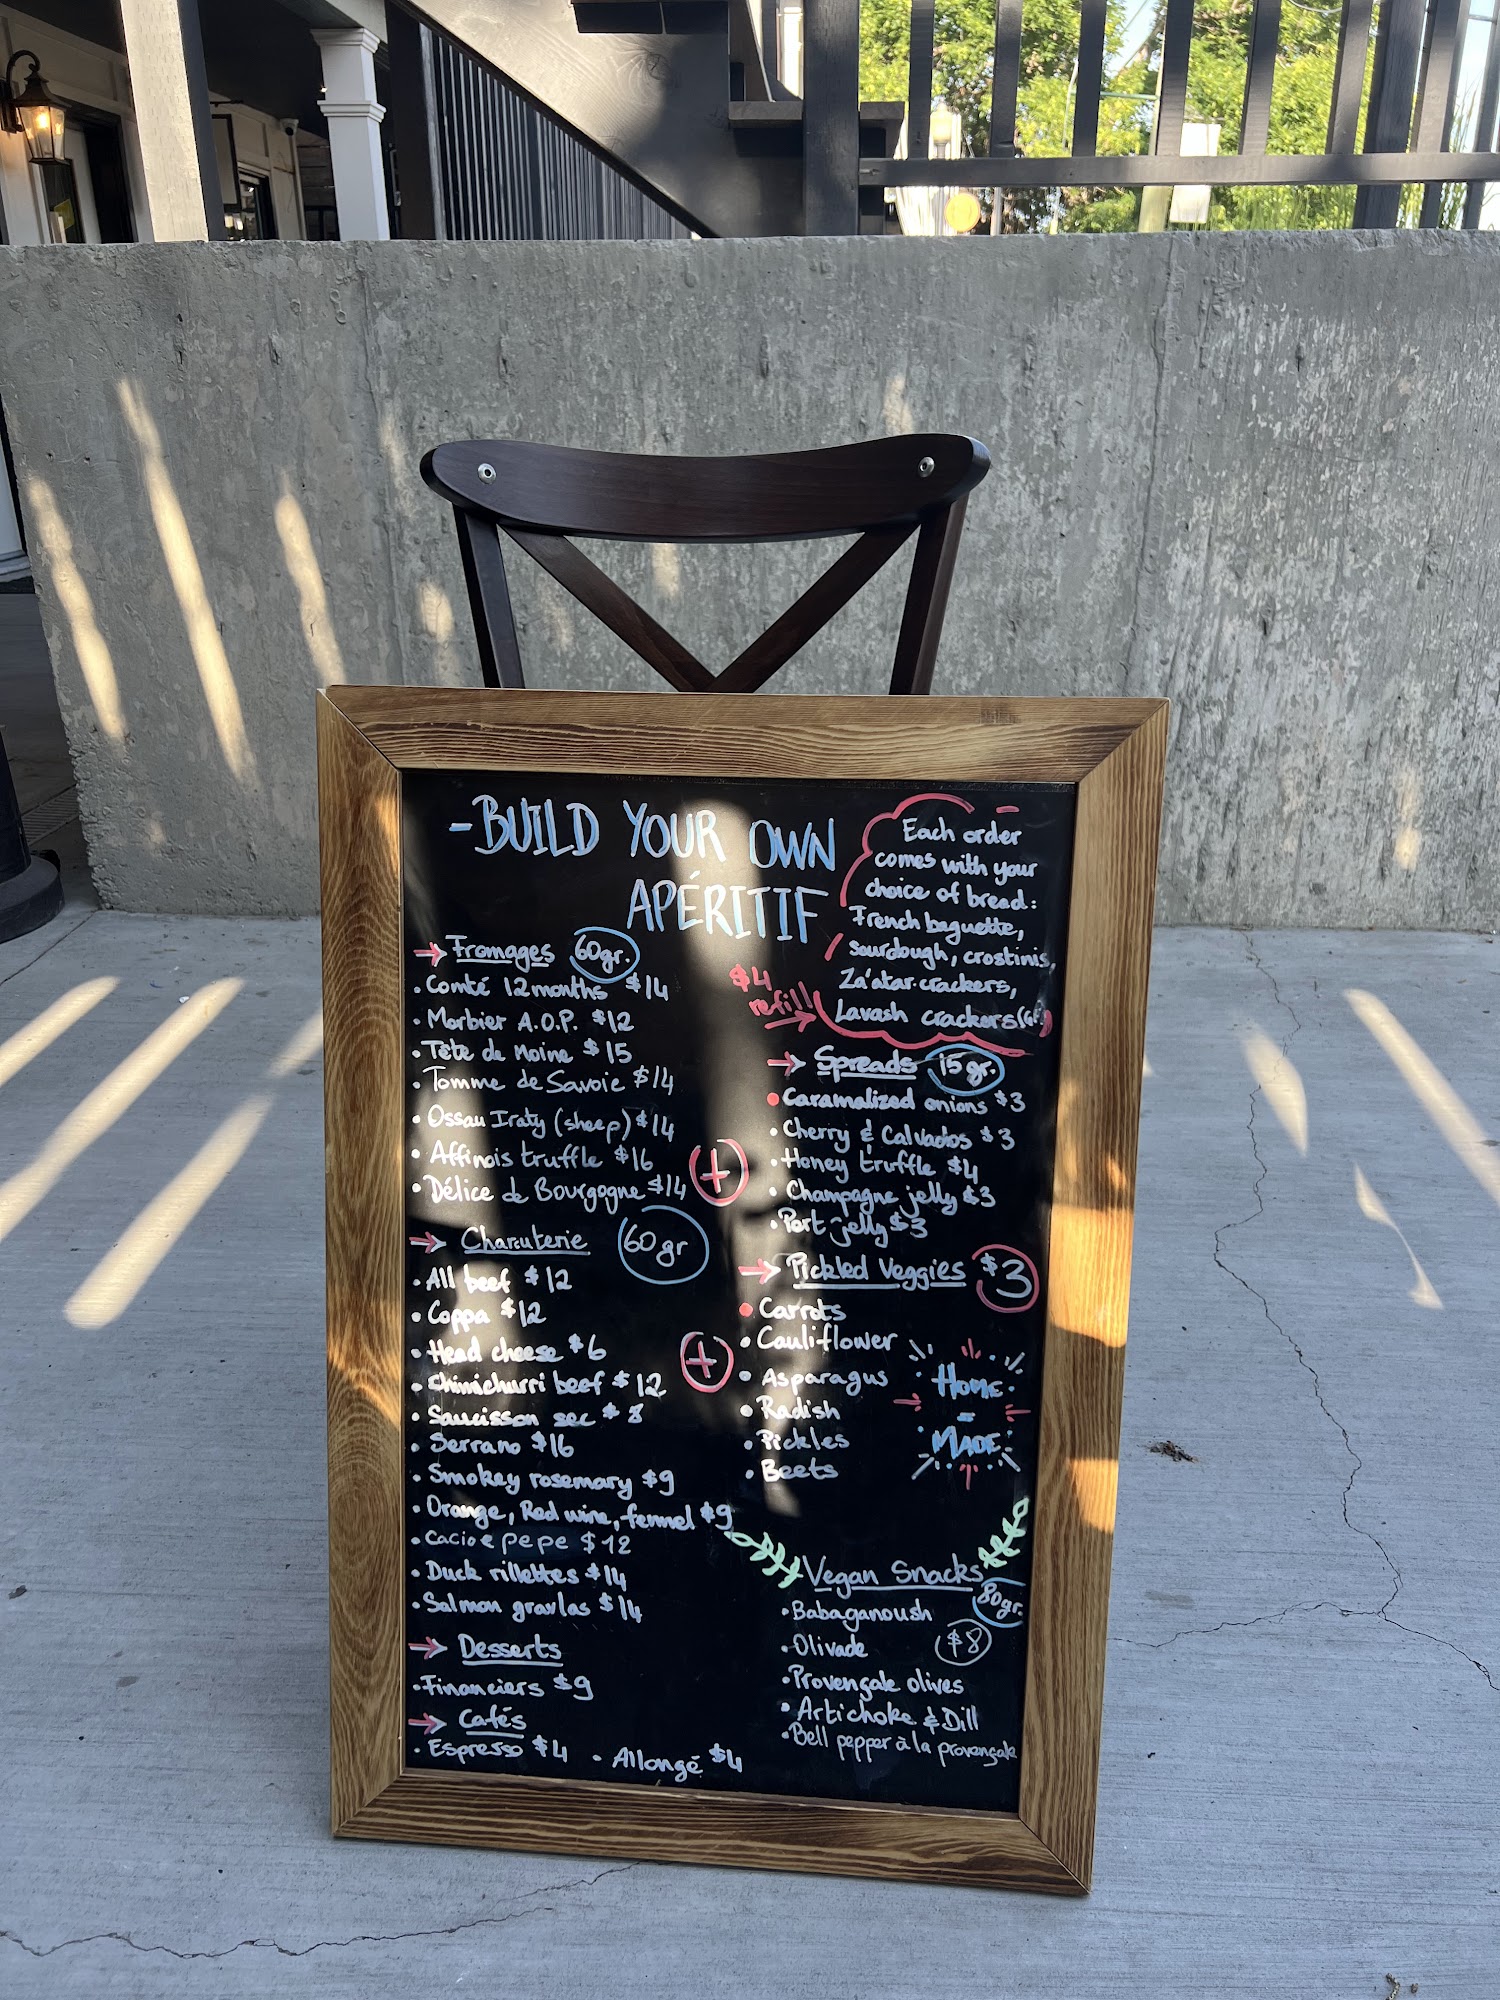 - BUILD YOUR OWN
APÉRITIF
Each order
comes with your
choice of bread:
French baguette,
sourdough, crostinis,
Za'atar crackers,
Lavash crackers (GF)
$4
refill
→ Fromages 60gr.
• Comté 12 months $14
• Morbier A.O.P. $12
• Tête de Moine $15
• Tomme de Savoie $14
• Ossau Iraty (sheep) $14
• Affinois truffle $16
• Délice de Bourgogne $14
+
→ Charcuterie 60 gr
• All beef $12
• Coppa $12
• Head cheese $6
• Chimichurri beef $12
• Saucisson sec $8
• Serrano $16
• Smokey rosemary $9
• Orange, Red wine, fennel $9
• Cacio e pepe $12
• Duck rillettes $14
• Salmon gravlas $14
+
→ Desserts
• Financiers $9
→ Cafés
• Espresso $4 • Allongé $4
→ Spreads 15 gr.
• Caramalized onions $3
• Cherry & Calvados $3
• Honey truffle $4
• Champagne jelly $3
• Port jelly $3
→ Pickled Veggies $3
• Carrots
• Cauliflower
• Asparagus
• Radish
• Pickles
• Beets
HOME
-
MADE
Vegan Snacks
80gr.
• Babaganoush
• Olivade $8
• Provençale olives
• Artichoke & Dill
• Bell pepper à la provençale